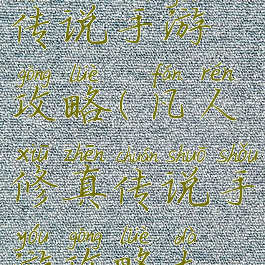 传说手游
gōng lüè fán rén
攻略(凡人
xiū zhēn chuán shuō shǒu
修真传说手
yóu gōng lüè